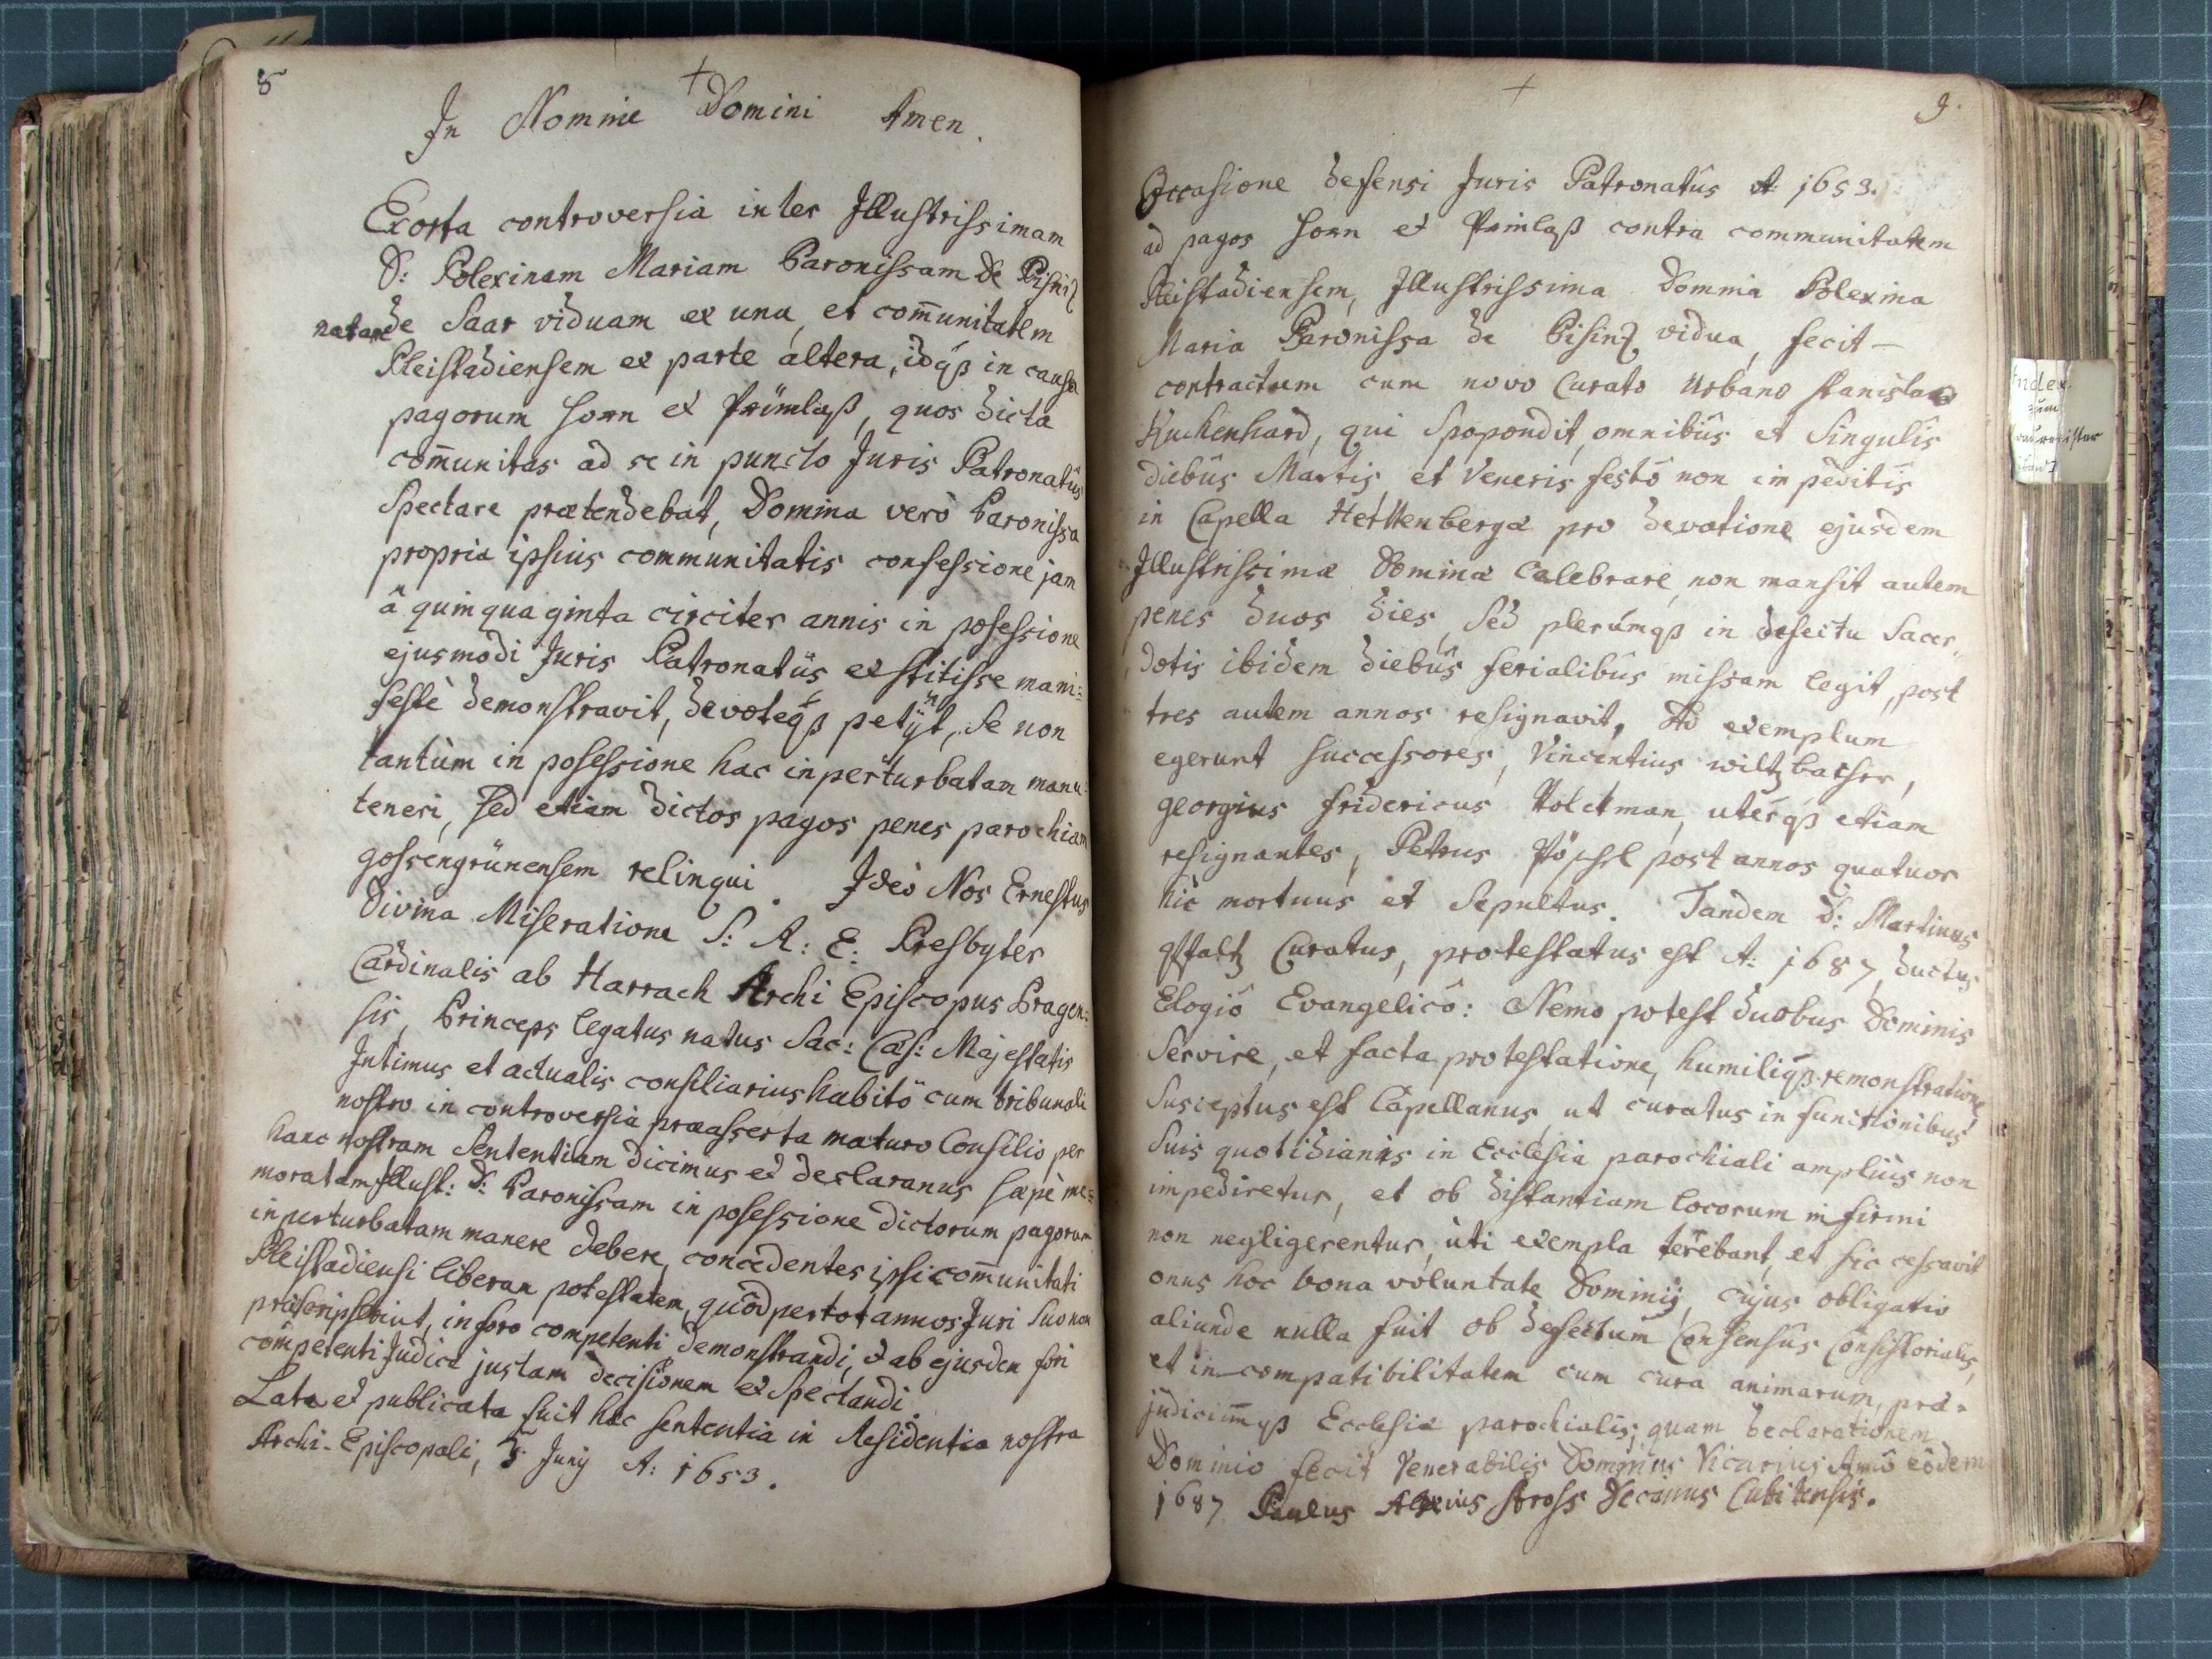 8
+
In Nomine Domini Amen.
Exorta controversia inter Illustrissimam
D: Polexinam Mariam Baronissam de Pisniz
natam de Saar viduam ex una, et com̄unitatem
Pleistadiensem ex parte altera, idqß in causa
pagorum Horn et Prümlaß, quos dicta
com̄unitas ad se in puncto Juris Patronatûs
Spectare prætendebat, Domina verò Baronissa
propria ipsius communitatis confessione jam
â quinquaginta circiter annis in posessione
ejusmodi Juris Patronatûs exstitisse mani=
festè demonstravit, devoteqß petijt, Se non
tantùm in posessione hac inperturbatam manu=
teneri, sed etiam dictos pagos penes parochiam
gossengrünensem relinqui. Ideò Nos Ernestus
divina Miseratione S: R: E: Presbyter
Cardinalis ab Harrach Archi Episcopus Pragen=
sis, Princeps legatus natus Sac: Cæs: Majestatis
Intimus et actualis consiliarius habitô cum tribunali
nostro in controversia præasserta maturo Consilio per
hanc nostram Sententiam dicimus et declaramus sæpè me=
moratam Illust: D: Baronissam in posessione dictorum pagorum
inperturbatam manere debere, concedentes ipsi com̄unitati
Pleistadiensi liberam potestatem, quôd per tot annos Juri Suo non
præscripserint, in foro competenti demonstrandi, et ab ejusdem fori
competenti Judice justam decisionem exspectandi.
Lata et publicata fuit hæc sententia in Residentia nostra
Archi-Episcopali, 3. Junij A: 1653.
+
9.
Occasione defensi Juris Patronatûs A: 1653.
ad pagos Horn et Prümlaß contra communitatem
Pleistadiensem, Illustrissima Domina Polexina
Maria Baronissa de Bisinz vidua, fecit —
contractum cum novo Curato Urbano Stanislao
Kuchenhard, qui Spopondit, omnibûs et Singulis
diebûs Martis et Veneris festô non impeditis
in Capella Hettenbergæ pro devotione ejusdem
Illustrissimæ Dominæ Celebrare, non mansit autem
penes duos dies, Sed plerúmqß in defectu Sacer„
dotis ibidem diebûs ferialibûs missam legit, post
tres autem annos resignavit, Ad exemplum
egerunt successores, Vincentius wiltzbacher,
georgius fridericus Volckman, uterqß etiam
resignantes, Petrus Pöschl post annos quatuor
hìc mortuus et Sepultus. Tandem D: Martinus
Pfaltz Curatus, protestatus est A: 1687, ductus
Elogiô Evangelicô: Nemo potest duobus Dominis
Servire, et facta protestatione, humiliqß remonstratione
Susceptus est Capellanus, ut curatus in functionibus
Suis quotidianis in Ecclesia parochiali ampliùs non
impediretur, et ob distantiam locorum infirmi
non negligerentur, uti exempla ferebant, et sic cessavit
onus hoc bona voluntate Dominij, cujus obligatio
aliunde nulla fuit ob defectum Consensûs Consistorialis,
et in-compatibilitatem cum cura animarum, præ=
judiciumqß Ecclesiæ parochialis; quam declarationem
Dominio fecit Venerabilis Dominus Vicarius Annô eôdem
1687 Paulus Alexius Stross Decanus Cubitensis.
Index
zum